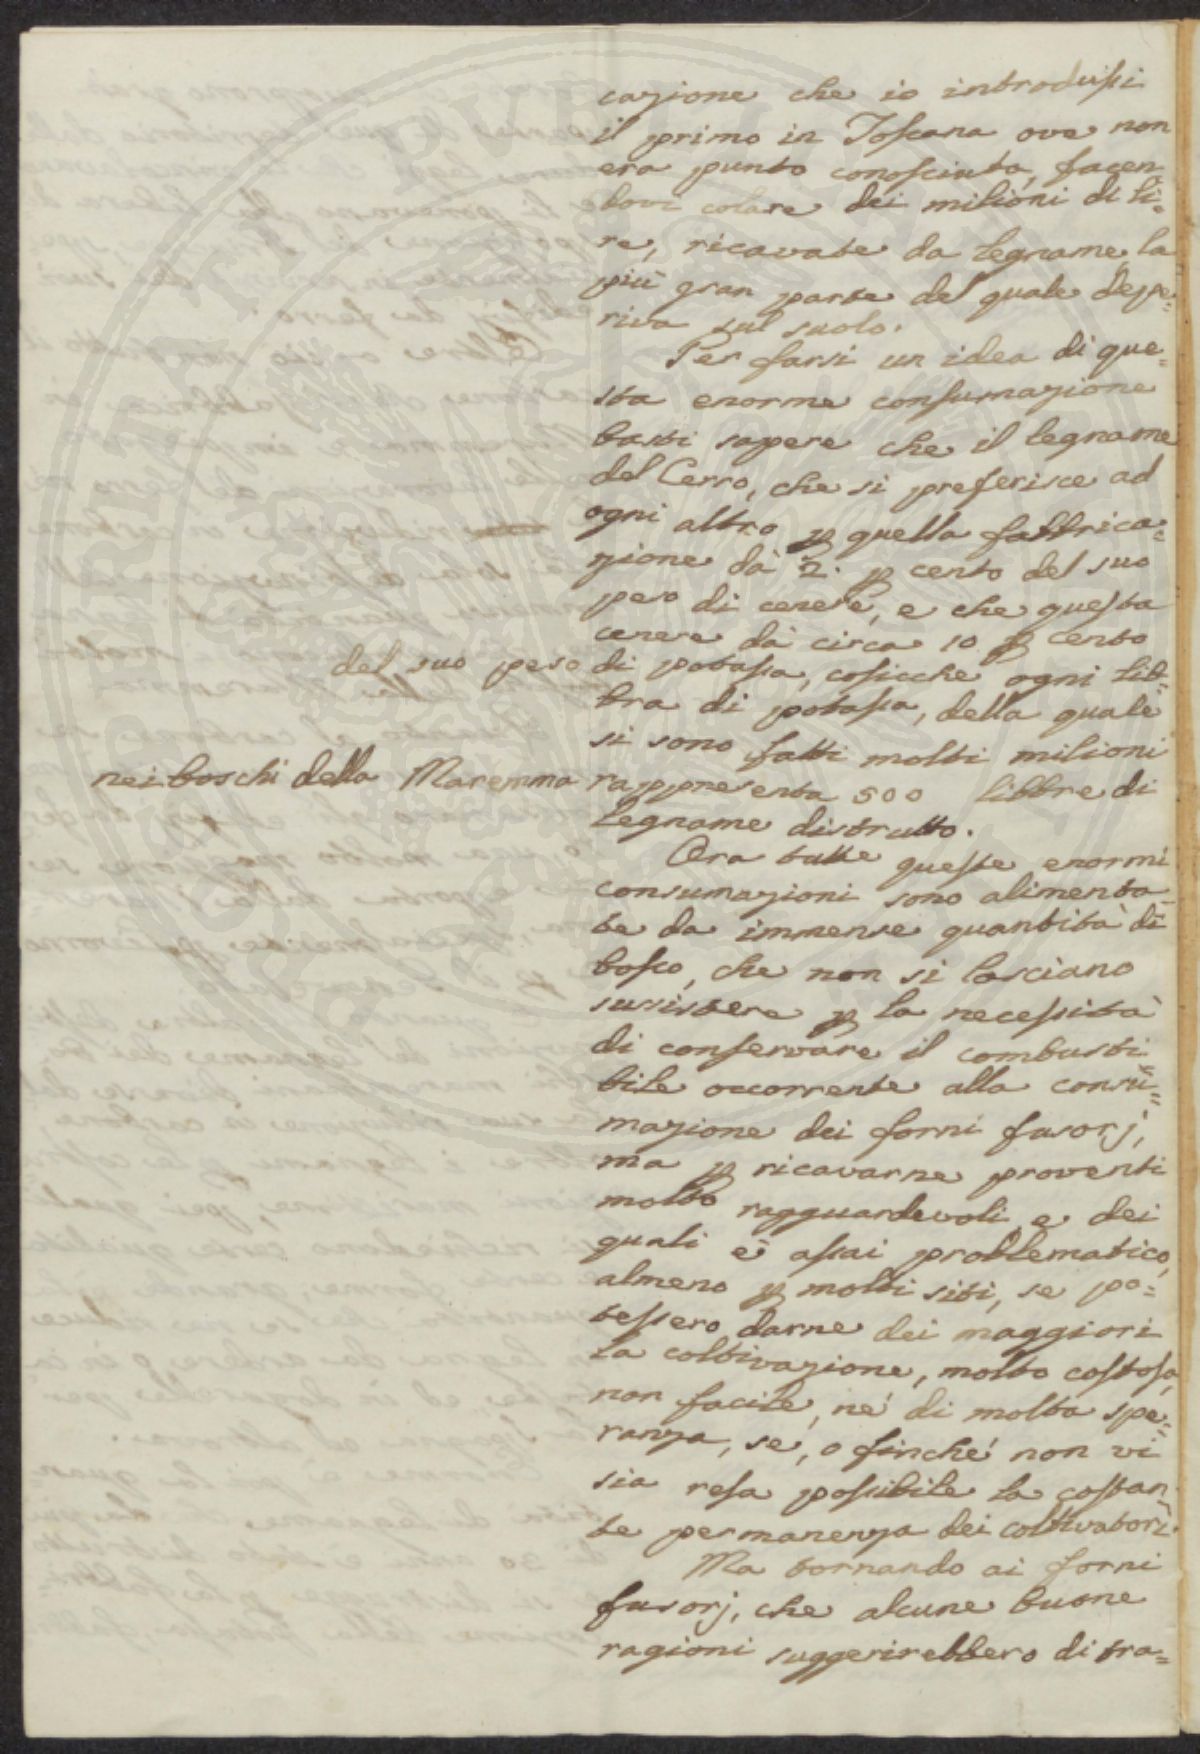 cazione che io introdussi
il primo in Toscana ove non
era punto conosciuta, facen-
dovi colare dei milioni di li=
re, ricavate da legname la
più gran parte del quale depe=
riva sul suolo.
Per farsi un idea di que=
sta enorme consumazione
basti sapere che il legname
del Cerro, che si preferisce ad
ogni altro p quella fabbrica=
zione dà 2. p cento del suo
peso di cenere, e che questa
cenere dà circa 10 p cento
del suo peso di potassa, cosicche ogni lib=
bra di potassa, della quale
si sono fatti molti milioni
nei boschi della Maremma rappresenta 500 libbre di
legname distrutto.
Ora tutte queste enormi
consumazioni sono alimenta-
te da immense quantità di
bosco, che non si lasciano
sussistere p la necessità
di conservare il combusti=
bile occorrente alla consu=
mazione dei forni fusorj,
ma p ricavarne proventi
molto ragguardevoli, e dei
quali è assai problematico,
almeno p molti siti, se po=
tessero darne dei maggiori
la coltivazione, molto costosa,
non facile, né di molta spe=
ranza, se, o finché non vi
sia resa possibile la costan-
te permanenza dei coltivatori.
Ma tornando ai forni
fusorj, che alcune buone
ragioni suggerirebbero di tra=